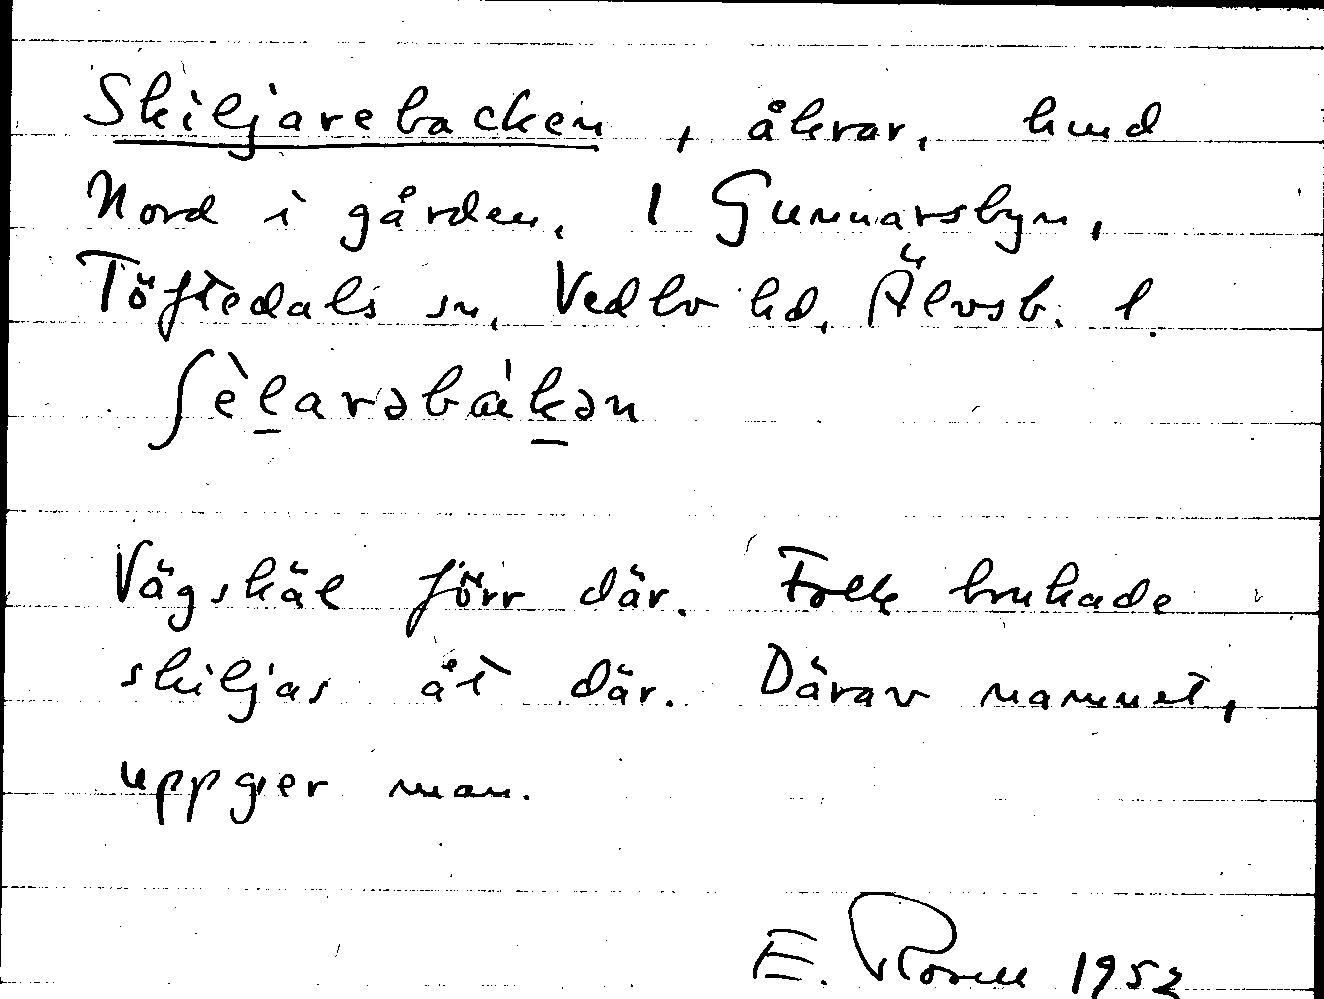 Skiljarebacken, åkrar, hmd
Nord i gården, 1 Gunnarsbyn,
Töftedals sn, Vedbo hd, Älvsb. l.
ʃèlarəbákən
Vägskäl förr där. Folk brukade
skiljas åt där. Därav namnet,
uppger man.
E. Rosell 1952